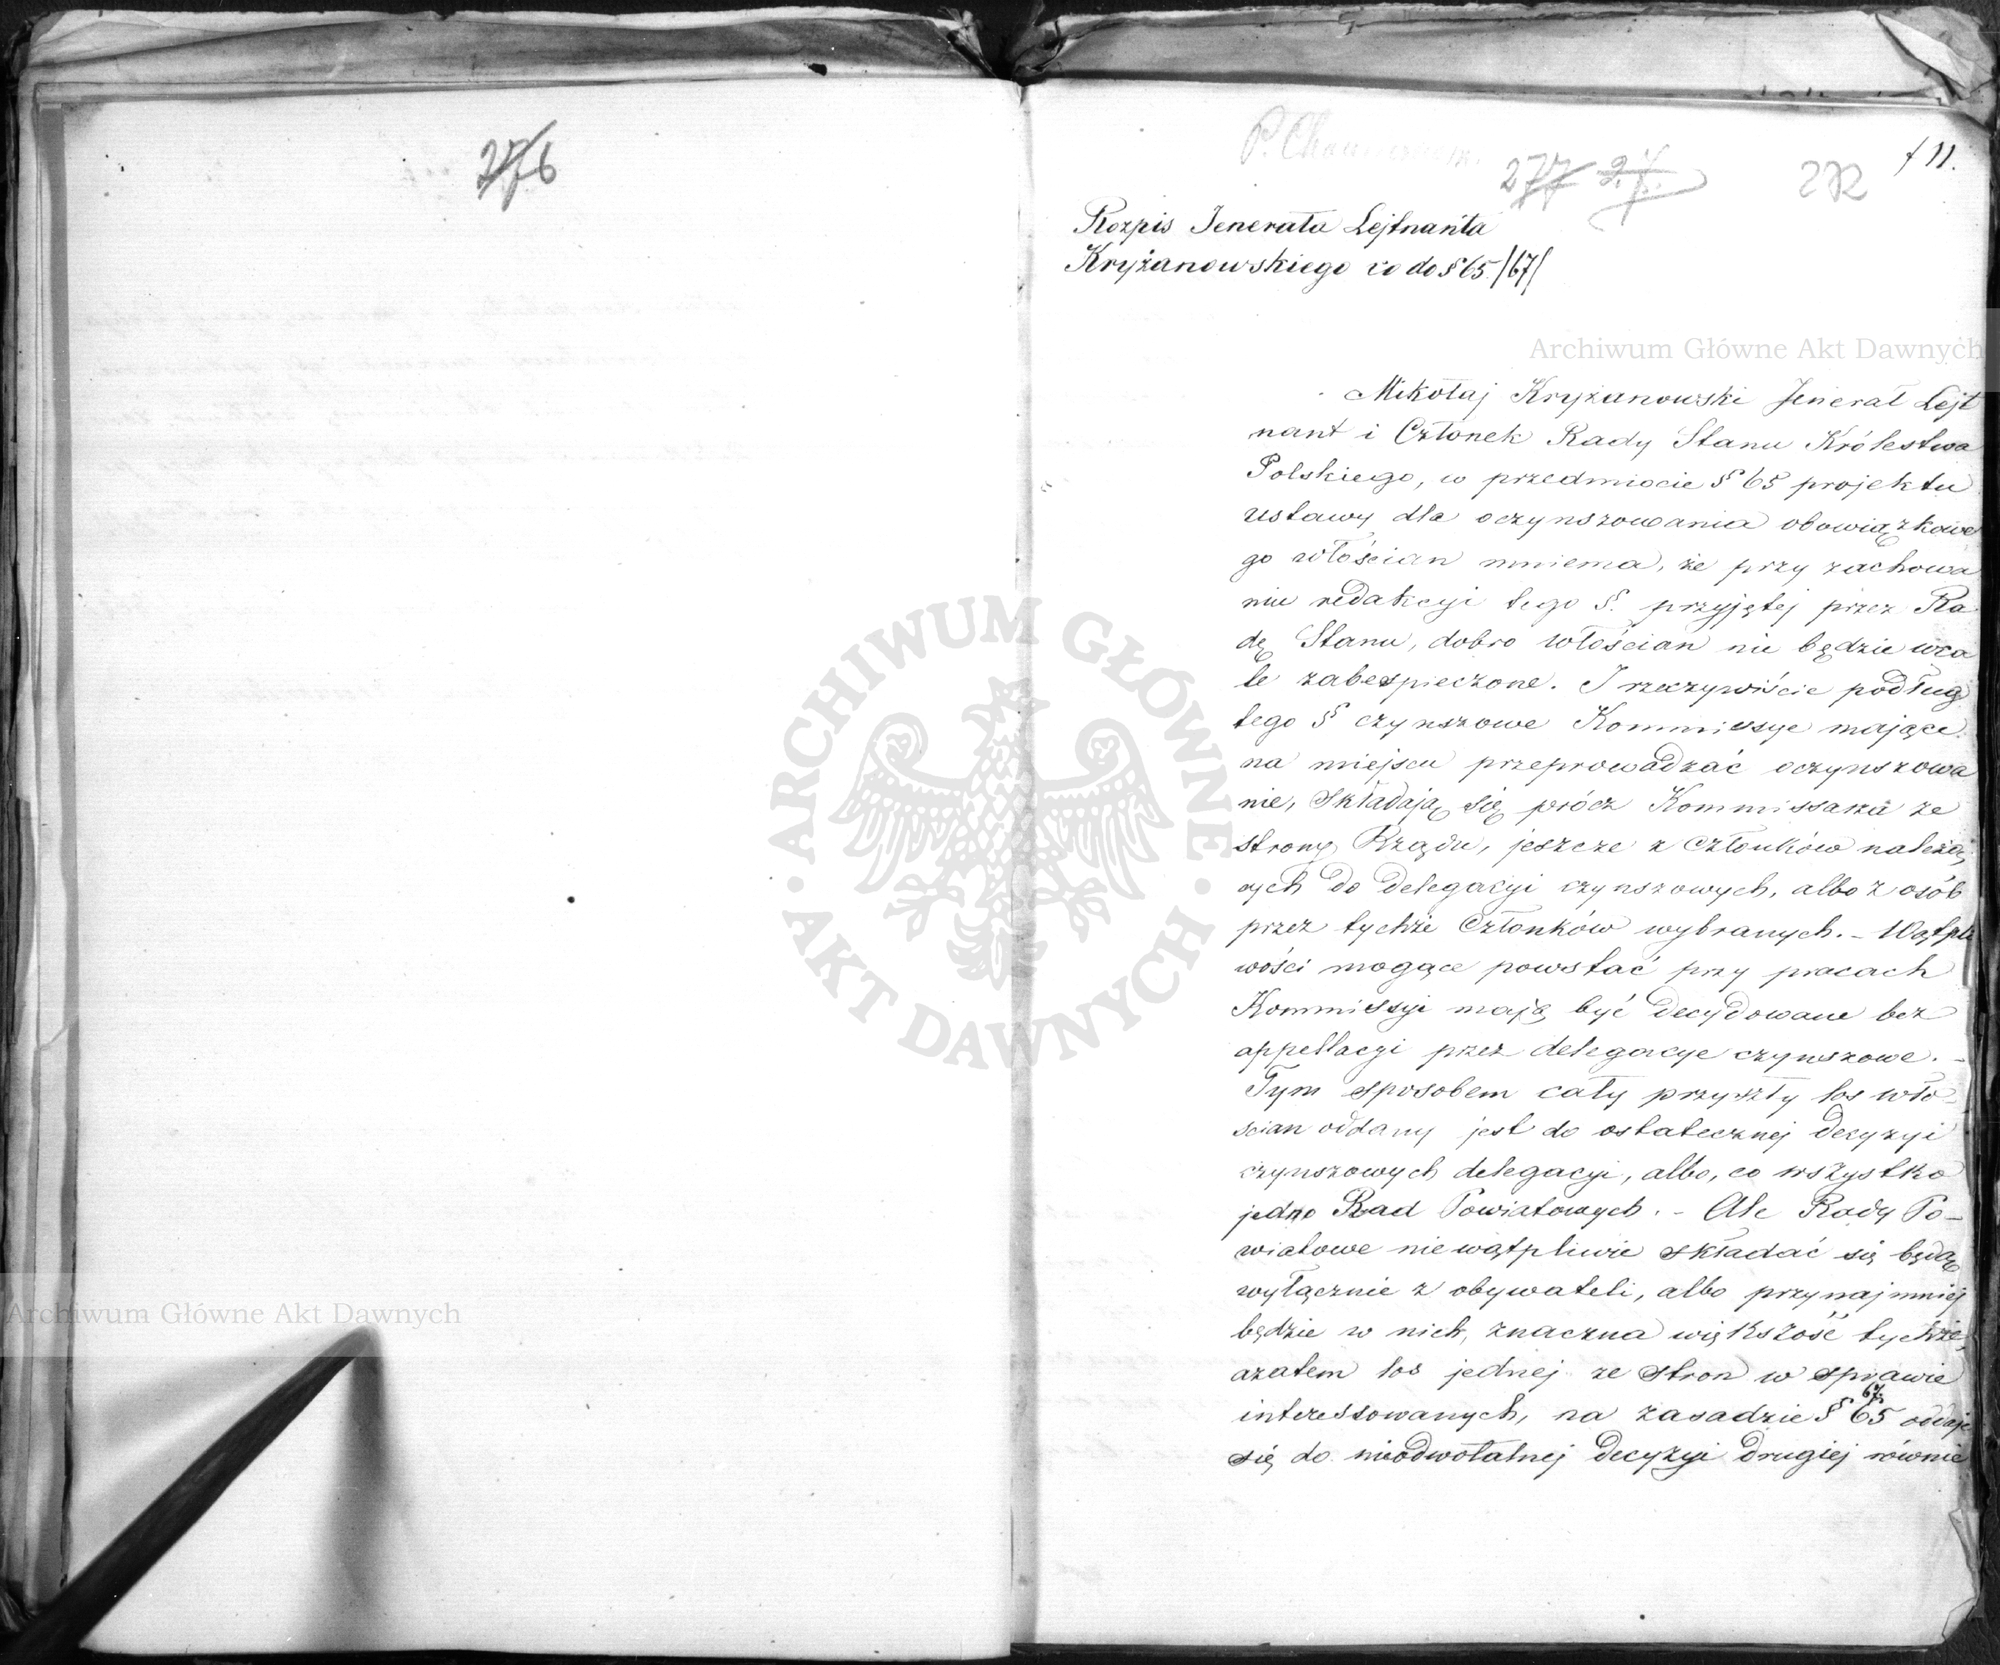 276
277
272
11.
Rozpis Jenerała Lejtnanta
Kryżanowskiego co do § 65. /67/
Archiwum Główne Akt Dawnych
Mikołaj Kryżanowski Jenerał Lejt
nant i Członek Rady Stanu Królestwa
Polskiego, w przedmiocie § 65 projektu
ustawy dla oczynszowania obowiązkowe
go włościan mniema, że przy zachowa
niu redakcyi tego §. przyjętej przez Ra
dę Stanu, dobro włościan nie będzie wca
le zabespieczone. I rzeczywiście podług
tego § czynszowe Kommissye mające
na miejscu przeprowadzać oczynszowa
nie, składają się prócz Kommissarza ze
strony Rządu, jeszcze z członków należą
cych do delegacyi czynszowych, albo z osób
przez tychże Członków wybranych. – Wątpli
wości mogące powstać przy pracach
Kommissyi mają być decydowane bez
appellacyi przez delegacye czynszowe. –
Tym sposobem cały przyszły los wło-
ścian oddany jest do ostatecznej decyzyi
czynszowych delegacyi, albo, co wszystko
jedno Rad Powiatowych. – Ale Rady Po-
wiatowe niewątpliwie składać się będą
wyłącznie z obywateli, albo przynajmniej
będzie w nich, znaczna większość tychże,
azatem los jednej ze stron w sprawie
interessowanych, na zasadzie § 65 67. oddaje
się do nieodwołalnej decyzyi drugiej równie
ARCHIWUM GŁÓWNE
AKT DAWNYCH
Archiwum Główne Akt Dawnych